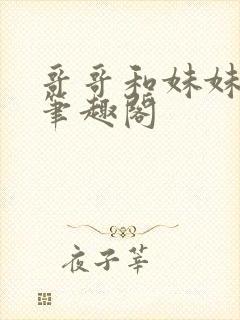 哥哥和妹妹
筆趣閣
夜子莘